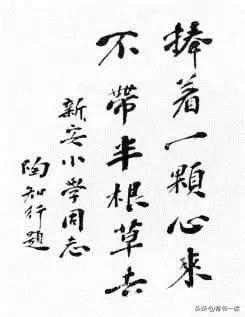 捧着一顆心来
不帶半根草去
新安小学同志
陶知行題
头条@青书一读